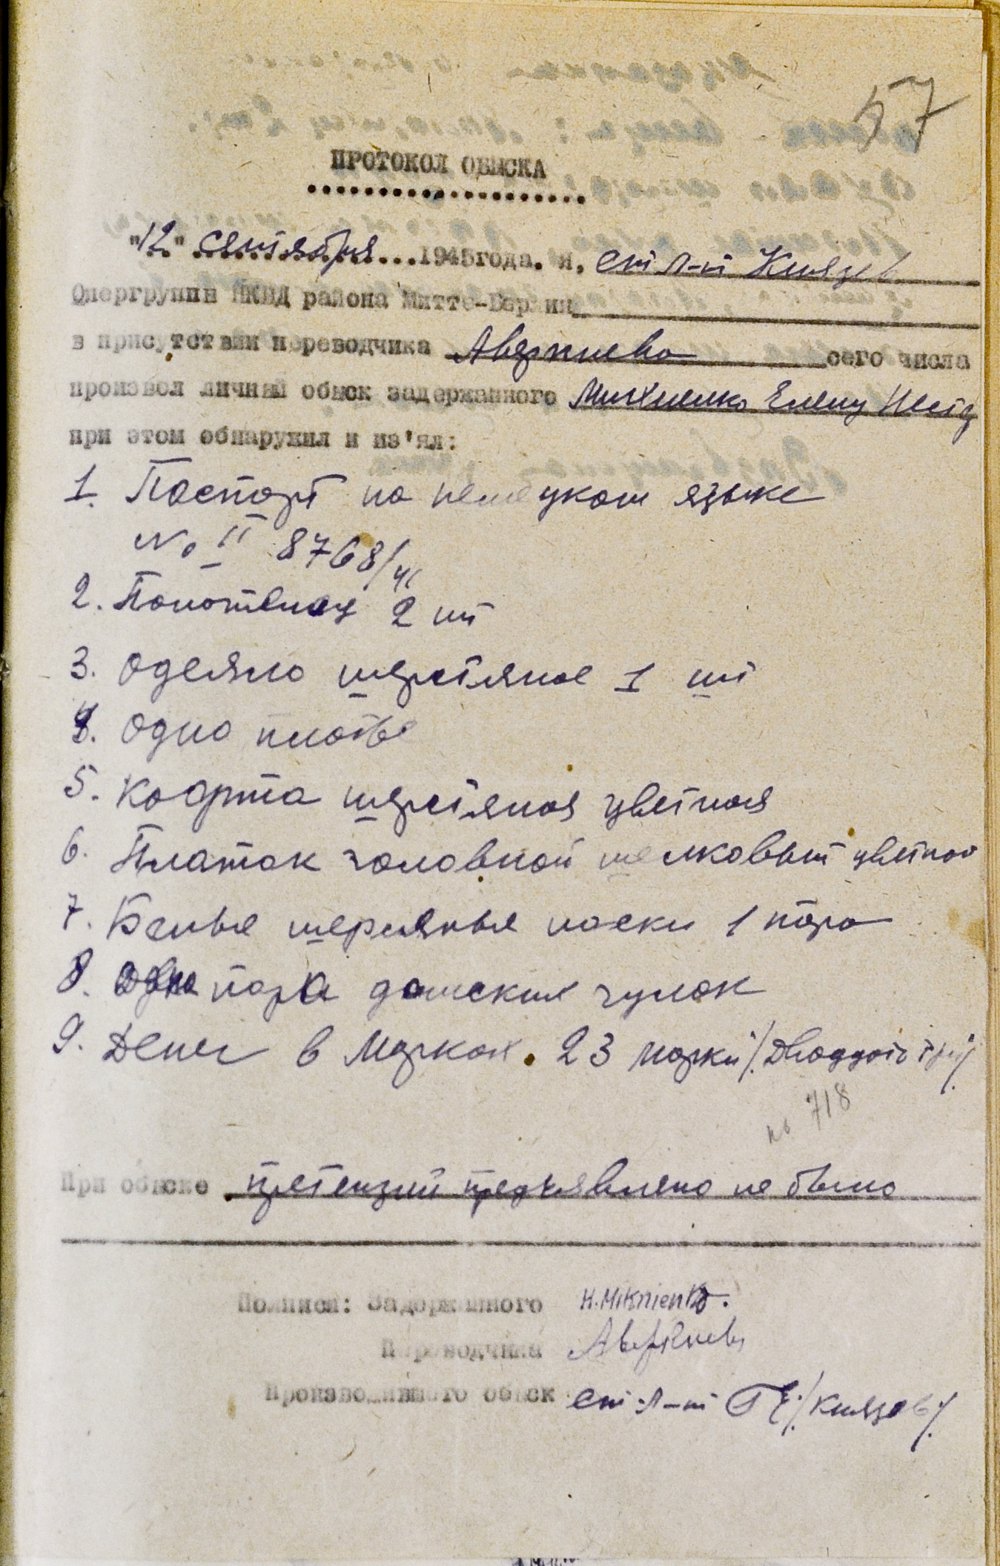 57
ПРОТОКОЛ ОБЫСКА
"12" сентября 1945 года. Я, ст л-т Князев
Опергруппи НКВД района Митте-Берлин
в присутствии переводчика Аверкиева сего числа
произвел личный обыск задержанного Михниенко Елену
при этом обнаружил и из'ял:
1. Паспорт на немецком языке
No II 8768/41
2. Полотенец 2 шт
3. Одеяло шерстяное 1 шт
4. Одно платье
5. Кофта шерстяная цветная
6. Платок головной шелковый цветной
7. Белье носки 1 пара
8. пара дамских чулок
9. Денег в Марках. 23 марки /Двадцать три/
718
При обыске претензий предъявлено не было
Подписи: Задержанного H. Miknienko.
Переводчика
Производившего обыск ст. л-т /Князев/